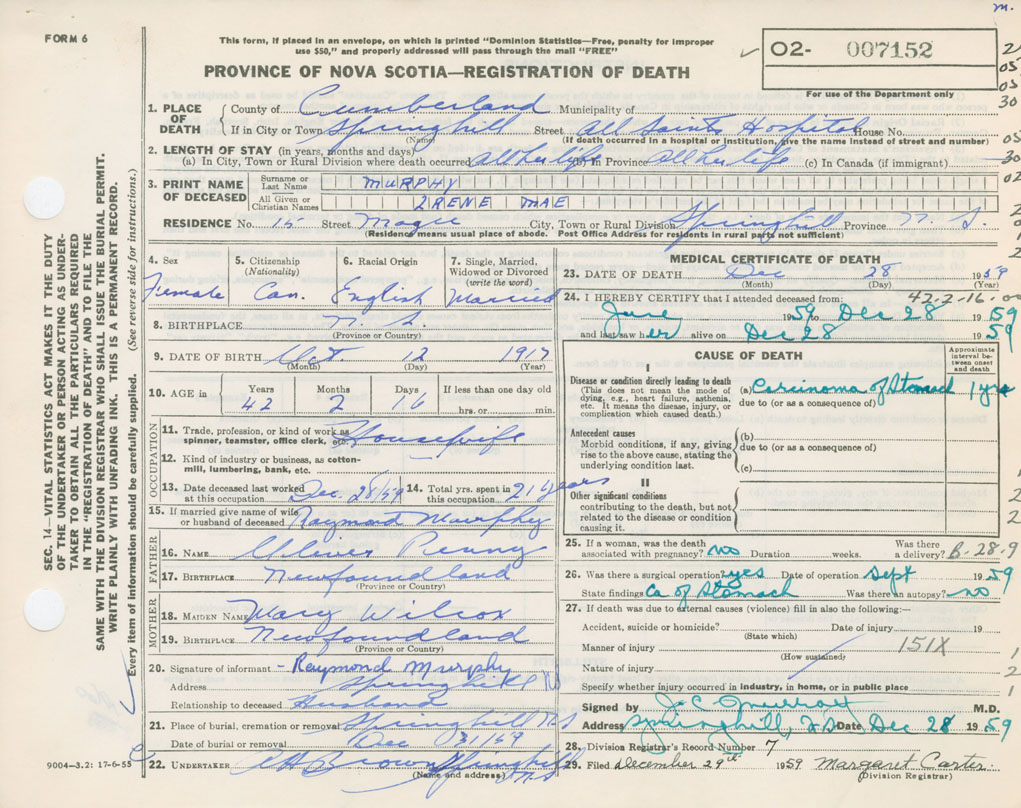 m.
FORM 6
This form, if placed in an envelope, on which is printed "Dominion Statistics—Free, penalty for improper
use $50," and properly addressed will pass through the mail "FREE"
O2- 007152
For use of the Department only
PROVINCE OF NOVA SCOTIA—REGISTRATION OF DEATH
1. PLACE OF DEATH County of Cumberland Municipality of
If in City or Town Springhill Street All Saints Hospital House No.
(Name) (If death occurred in a hospital or institution, give the name instead of street and number)
2. LENGTH OF STAY (in years, months and days)
(a) In City, Town or Rural Division where death occurred All her life (b) In Province All her life (c) In Canada (if immigrant)
3. PRINT NAME OF DECEASED Surname or Last Name MURPHY
All Given or Christian Names IRENE MAE
RESIDENCE No. 15 Street Magee City, Town or Rural Division Springhill Province N. S.
(Residence means usual place of abode. Post Office Address for residents in rural parts not sufficient)
4. Sex 5. Citizenship (Nationality) 6. Racial Origin 7. Single, Married, Widowed or Divorced (write the word)
Female Can. English Married
8. BIRTHPLACE N. S.
(Province or Country)
9. DATE OF BIRTH Oct 12 1917
(Month) (Day) (Year)
10. AGE in Years Months Days If less than one day old
42 2 16 hrs. or min.
OCCUPATION
11. Trade, profession, or kind of work as spinner, teamster, office clerk, etc. Housewife
12. Kind of industry or business, as cotton-mill, lumbering, bank, etc.
13. Date deceased last worked at this occupation Dec. 28/59 14. Total yrs. spent in this occupation 21 years
15. If married give name of wife or husband of deceased Raymond Murphy
FATHER
16. NAME Oliver Penny
17. BIRTHPLACE Newfoundland
(Province or Country)
MOTHER
18. MAIDEN NAME Mary Wilcox
19. BIRTHPLACE Newfoundland
(Province or Country)
20. Signature of informant - Raymond Murphy
Address Springhill NS
Relationship to deceased Husband
21. Place of burial, cremation or removal Springhill NS
Date of burial or removal Dec 31/59
22. UNDERTAKER Brown Springhill N.S.
(Name and address)
MEDICAL CERTIFICATE OF DEATH
23. DATE OF DEATH Dec 28 1959
(Month) (Day) (Year)
42-2-16-00
24. I HEREBY CERTIFY that I attended deceased from:
June 1959 to Dec 28 1959
and last saw her alive on Dec 28 1959
CAUSE OF DEATH
Approximate interval between onset and death
I
Disease or condition directly leading to death
(This does not mean the mode of dying, e.g., heart failure, asthenia, etc. It means the disease, injury, or complication which caused death.)
(a) Carcinoma of Stomach 1 yrs
due to (or as a consequence of)
Antecedent causes
Morbid conditions, if any, giving rise to the above cause, stating the underlying condition last.
(b)
due to (or as a consequence of)
(c)
II
Other significant conditions
contributing to the death, but not related to the disease or condition causing it.
25. If a woman, was the death associated with pregnancy? no Duration weeks. Was there a delivery? B-28-9
26. Was there a surgical operation? yes Date of operation Sept 1959
State findings Ca of Stomach Was there an autopsy? no
27. If death was due to external causes (violence) fill in also the following:—
Accident, suicide or homicide? Date of injury 19
(State which)
Manner of injury 151X
(How sustained)
Nature of injury
Specify whether injury occurred in industry, in home, or in public place
Signed by M.D.
Address Springhill, N.S. Date Dec 28 1959
28. Division Registrar's Record Number 7
29. Filed December 29th 1959 Margaret Carter
(Division Registrar)
SEC. 14—VITAL STATISTICS ACT MAKES IT THE DUTY
OF THE UNDERTAKER OR PERSON ACTING AS UNDER-
TAKER TO OBTAIN ALL THE PARTICULARS REQUIRED
IN THE "REGISTRATION OF DEATH" AND TO FILE THE
SAME WITH THE DIVISION REGISTRAR WHO SHALL ISSUE THE BURIAL PERMIT.
WRITE PLAINLY WITH UNFADING INK. THIS IS A PERMANENT RECORD.
Every item of information should be carefully supplied. (See reverse side for instructions.)
9004—3.2: 17-6-55